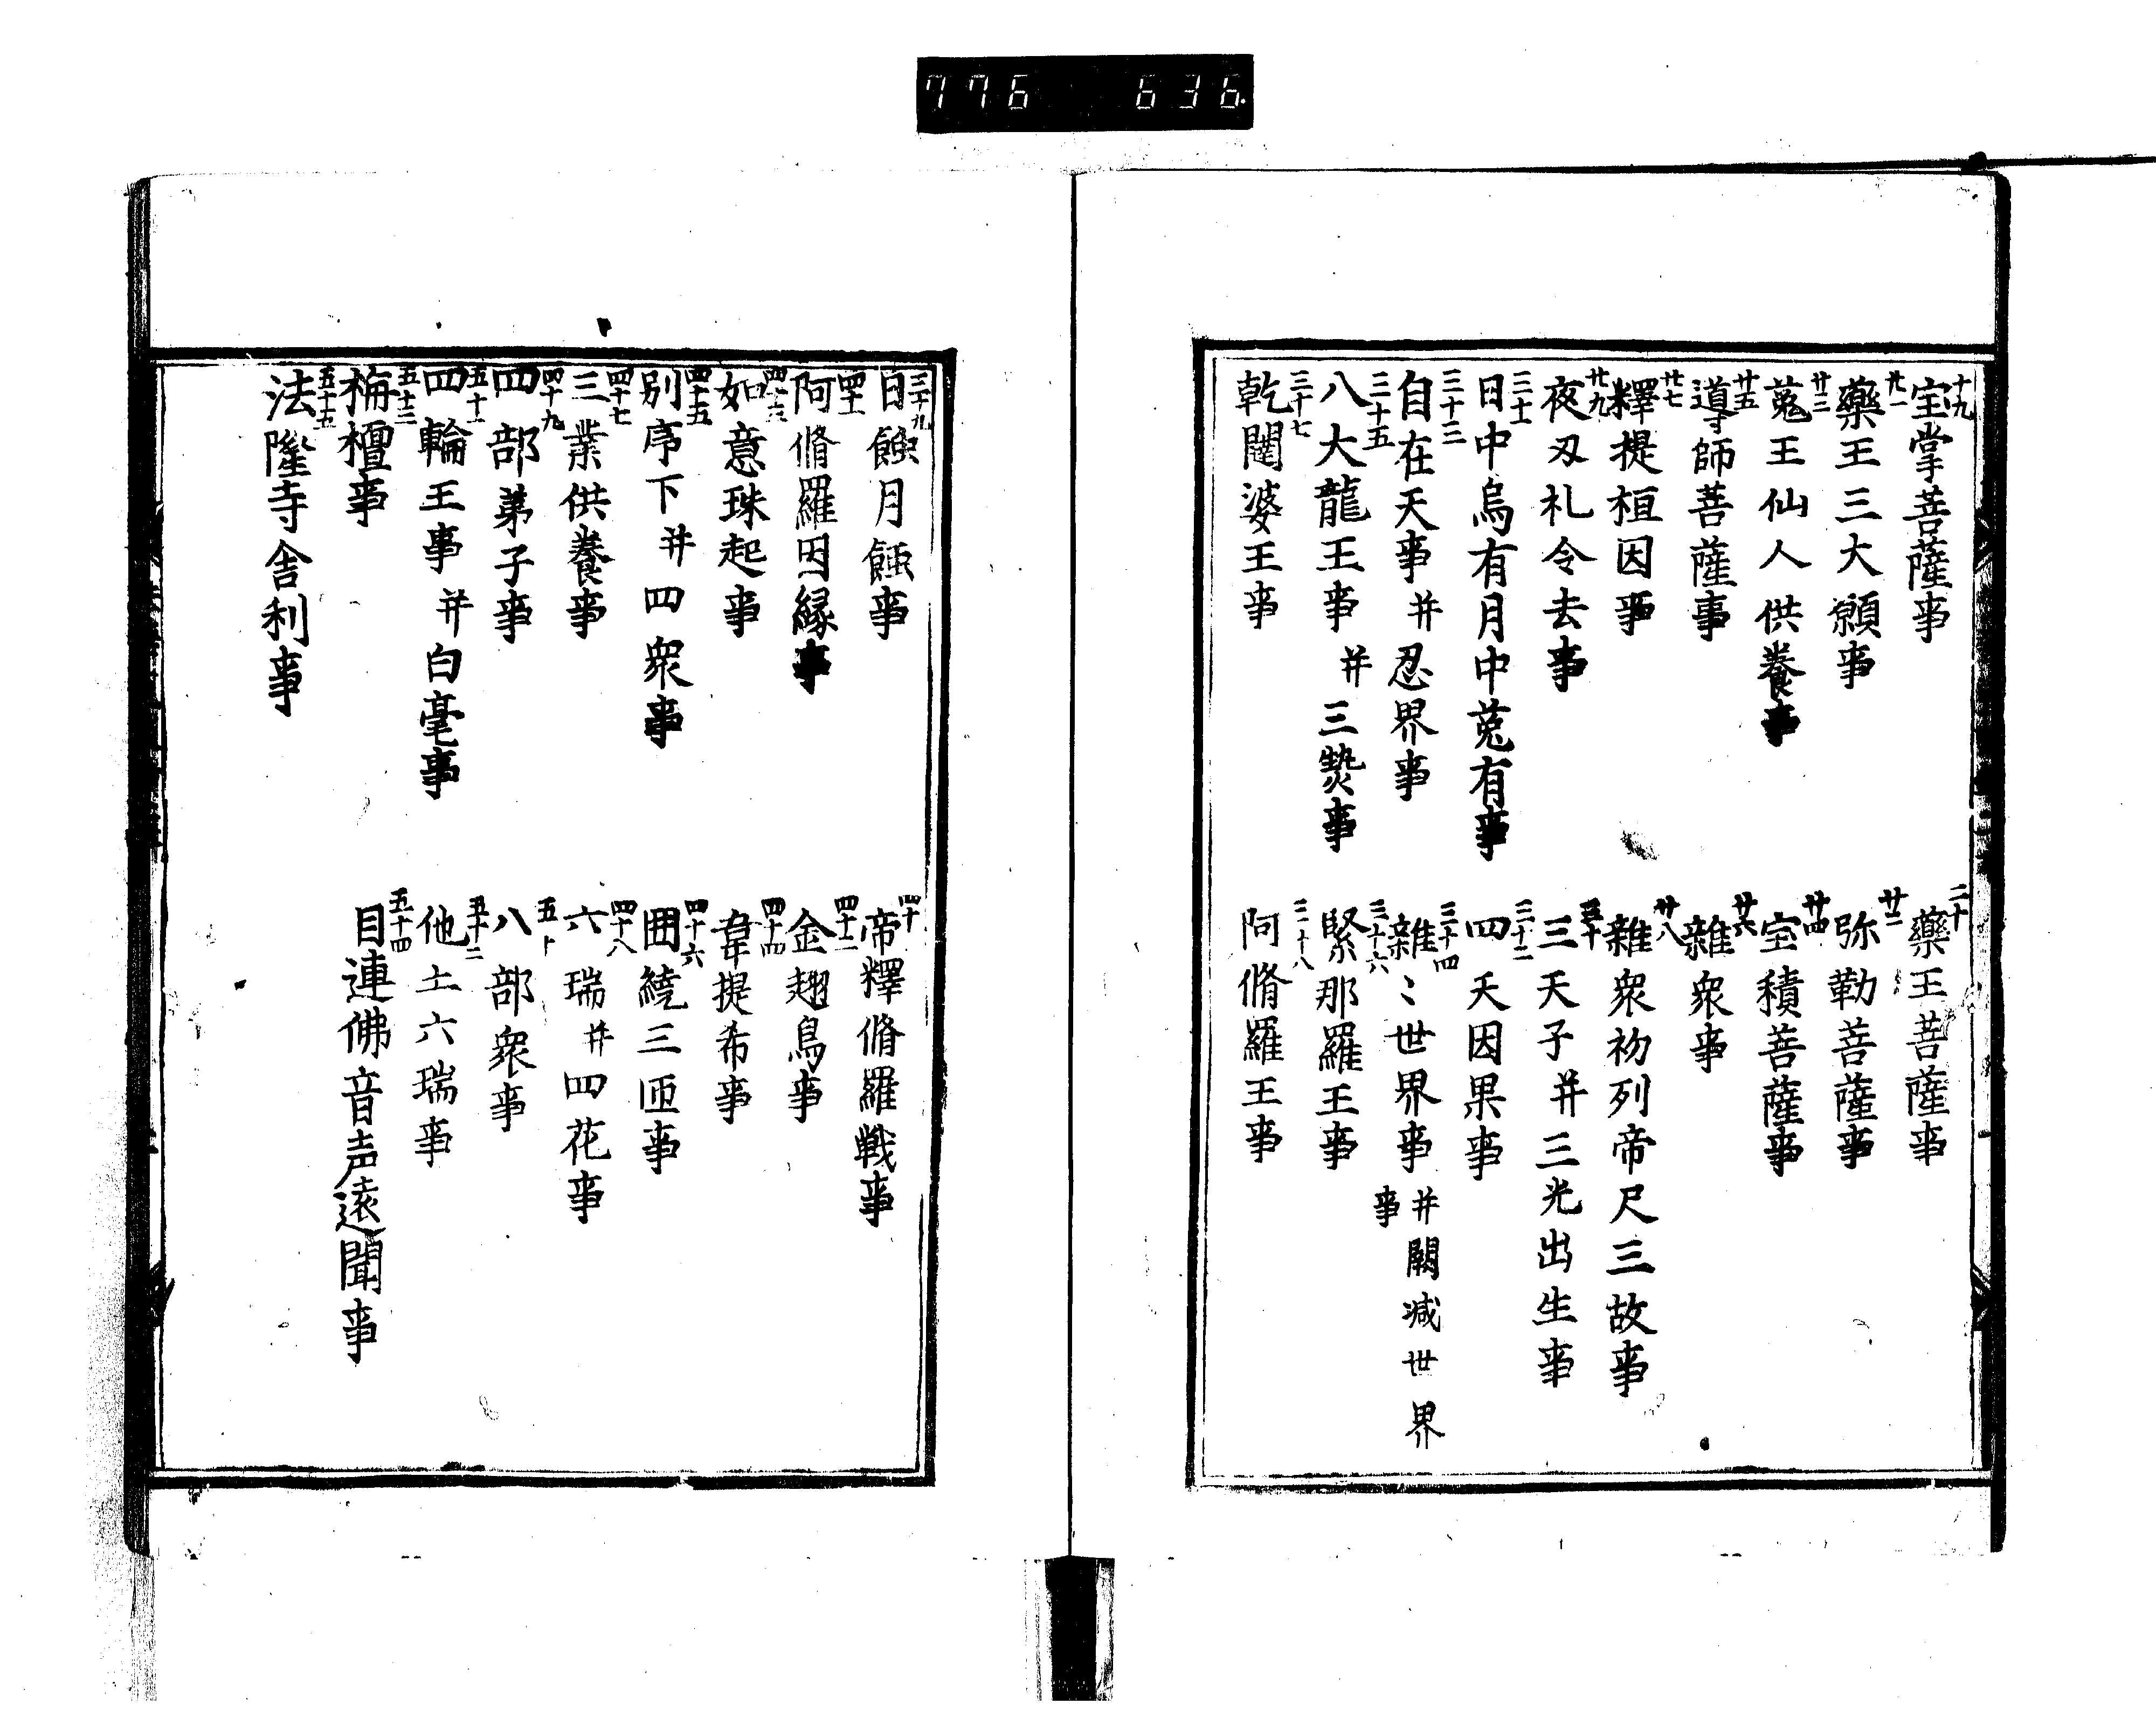 776 636
十九 宝掌菩薩事
二十 藥王菩薩事
廿一 藥王三大願事
廿二 弥勒菩薩事
廿三 菟王仙人供養事
廿四 宝積菩薩事
廿五 導師菩薩事
廿六 雜衆事
廿七 釋提桓因事
廿八 雜衆初列帝尺三故事
廿九 夜叉礼令去事
三十 三天子并三光出生事
三十一 日中烏有月中菟有事
三十二 四天因果事
三十三 自在天事并忍界事
三十四 雜〻世界事并闕減世界事
三十五 八大龍王事并三熱事
三十六 緊那羅王事
三十七 乾闥婆王事
三十八 阿脩羅王事
三十九 日蝕月蝕事
四十 帝釋脩羅戦事
四十一 阿脩羅因縁事
四十二 金翅鳥事
四十三 如意珠起事
四十四 韋提希事
四十五 別序下并四衆事
四十六 囲繞三匝事
四十七 三業供養事
四十八 六瑞并四花事
四十九 四部弟子事
五十 八部衆事
五十一 四輪王事并白毫事
五十二 他土六瑞事
五十三 栴檀事
五十四 目連佛音声遠聞事
五十五 法隆寺舎利事